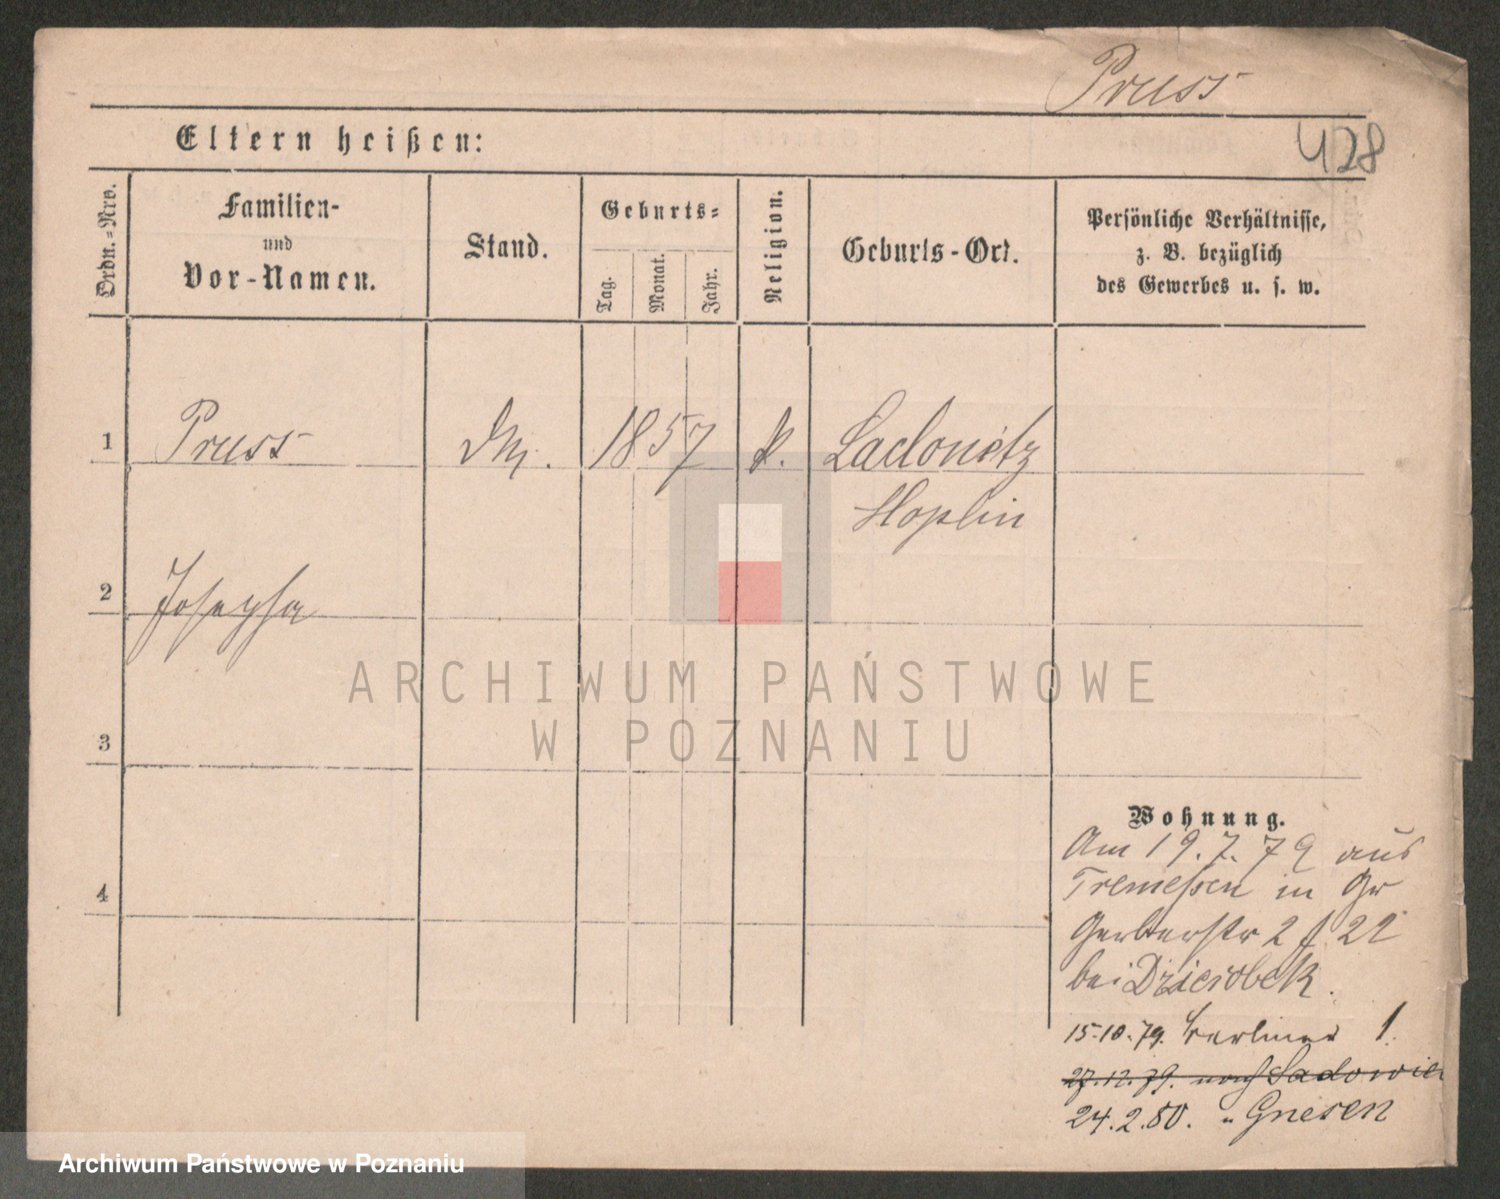 Pruss
428
Eltern heißen:
Ordn.-Nro.
Familien-
und
Vor-Namen.
Stand.
Geburts-
Tag.
Monat.
Jahr.
Religion.
Geburts-Ort.
Persönliche Verhältnisse,
z. B. bezüglich
des Gewerbes u. s. w.
1
Pruss
1857
k.
Ladonetz
2
Josepha
3
4
Wohnung.
Am 19.7.79 aus
Tremeßen in Gr
Gerberstr 2 f. 22
bei Dzierobek.
15.10.79. Berliner 1.
27.12.79. nach Sadowie
24.2.80. " Gnesen
ARCHIWUM PAŃSTWOWE
W POZNANIU
Archiwum Państwowe w Poznaniu